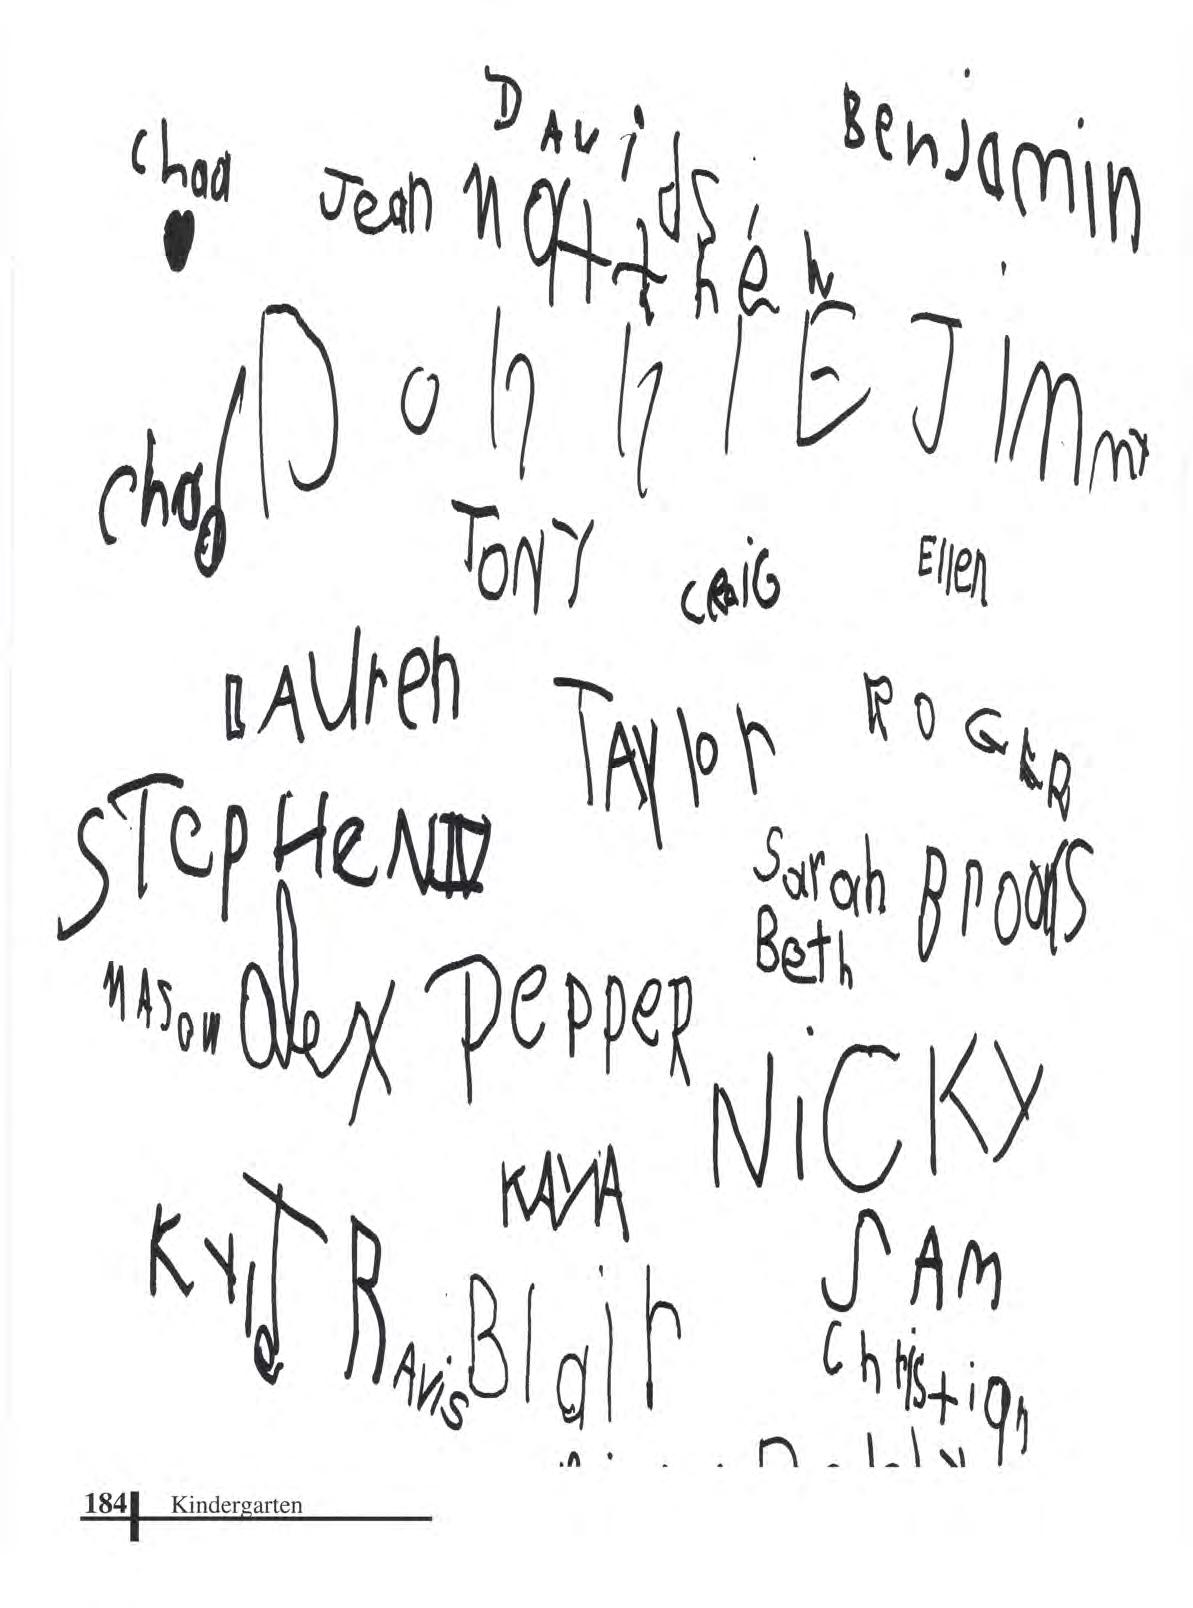 DAvids
Benjamin
Chad
Jean
Matthew
Chad
DonnIE
JImmy
TONY
CRaiG
Ellen
LAUren
TAylor
ROGER
STePHeN IV
Sarah
Beth
Brooks
MASON
Alex
PepPeR
NiCKY
KAyA
Kyle
TRAvis
Blair
SAM
Christian
184 Kindergarten